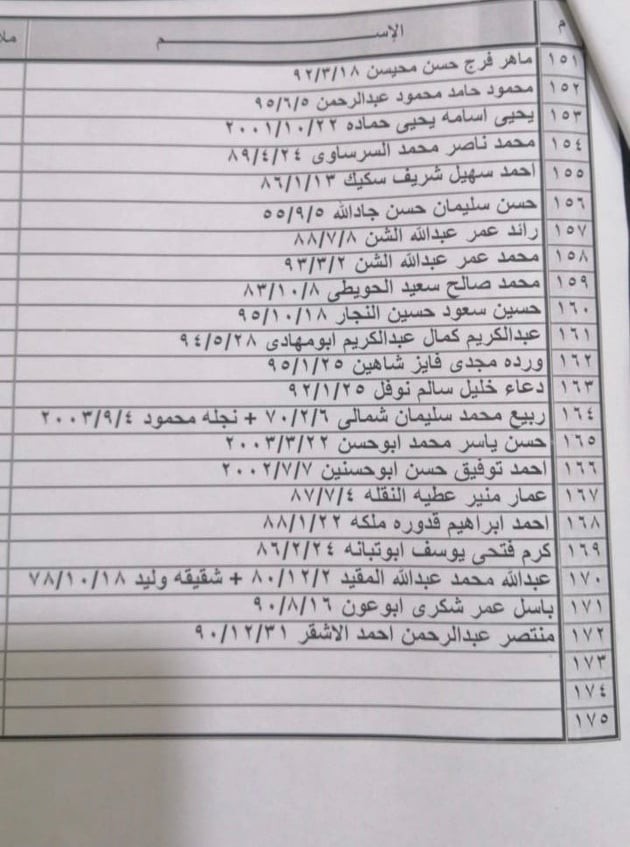 م الإســـــــــــــــم ملا
١٥١ ماهر فرج حسن محيسن ٩٢/٣/١٨
١٥٢ محمود حامد محمود عبدالرحمن ٩٥/٦/٥
١٥٣ يحيى اسامه يحيى حماده ٢٠٠١/١٠/٢٢
١٥٤ محمد ناصر محمد السرساوى ٨٩/٤/٢٤
١٥٥ احمد سهيل شريف سكيك ٨٦/١/١٣
١٥٦ حسن سليمان حسن جادالله ٥٥/٩/٥
١٥٧ رائد عمر عبدالله الشن ٨٨/٧/٨
١٥٨ محمد عمر عبدالله الشن ٩٣/٣/٢
١٥٩ محمد صالح سعيد الحويطى ٨٣/١٠/٨
١٦٠ حسين سعود حسين النجار ٩٥/١٠/١٨
١٦١ عبدالكريم كمال عبدالكريم ابومهادى ٩٤/٥/٢٨
١٦٢ ورده مجدى فايز شاهين ٩٥/١/٢٥
١٦٣ دعاء خليل سالم نوفل ٩٢/١/٢٥
١٦٤ ربيع محمد سليمان شمالى ٧٠/٢/٦ + نجله محمود ٢٠٠٣/٩/٤
١٦٥ حسن ياسر محمد ابوحسن ٢٠٠٣/٣/٢٢
١٦٦ احمد توفيق حسن ابوحسنين ٢٠٠٢/٧/٧
١٦٧ عمار منير عطيه النقله ٨٧/٧/٤
١٦٨ احمد ابراهيم قدوره ملكه ٨٨/١/٢٢
١٦٩ كرم فتحى يوسف ابوتبانه ٨٦/٢/٢٤
١٧٠ عبدالله محمد عبدالله المقيد ٨٠/١٢/٢ + شقيقه وليد ٧٨/١٠/١٨
١٧١ باسل عمر شكرى ابوعون ٩٠/٨/١٦
١٧٢ منتصر عبدالرحمن احمد الاشقر ٩٠/١٢/٣١
١٧٣
١٧٤
١٧٥